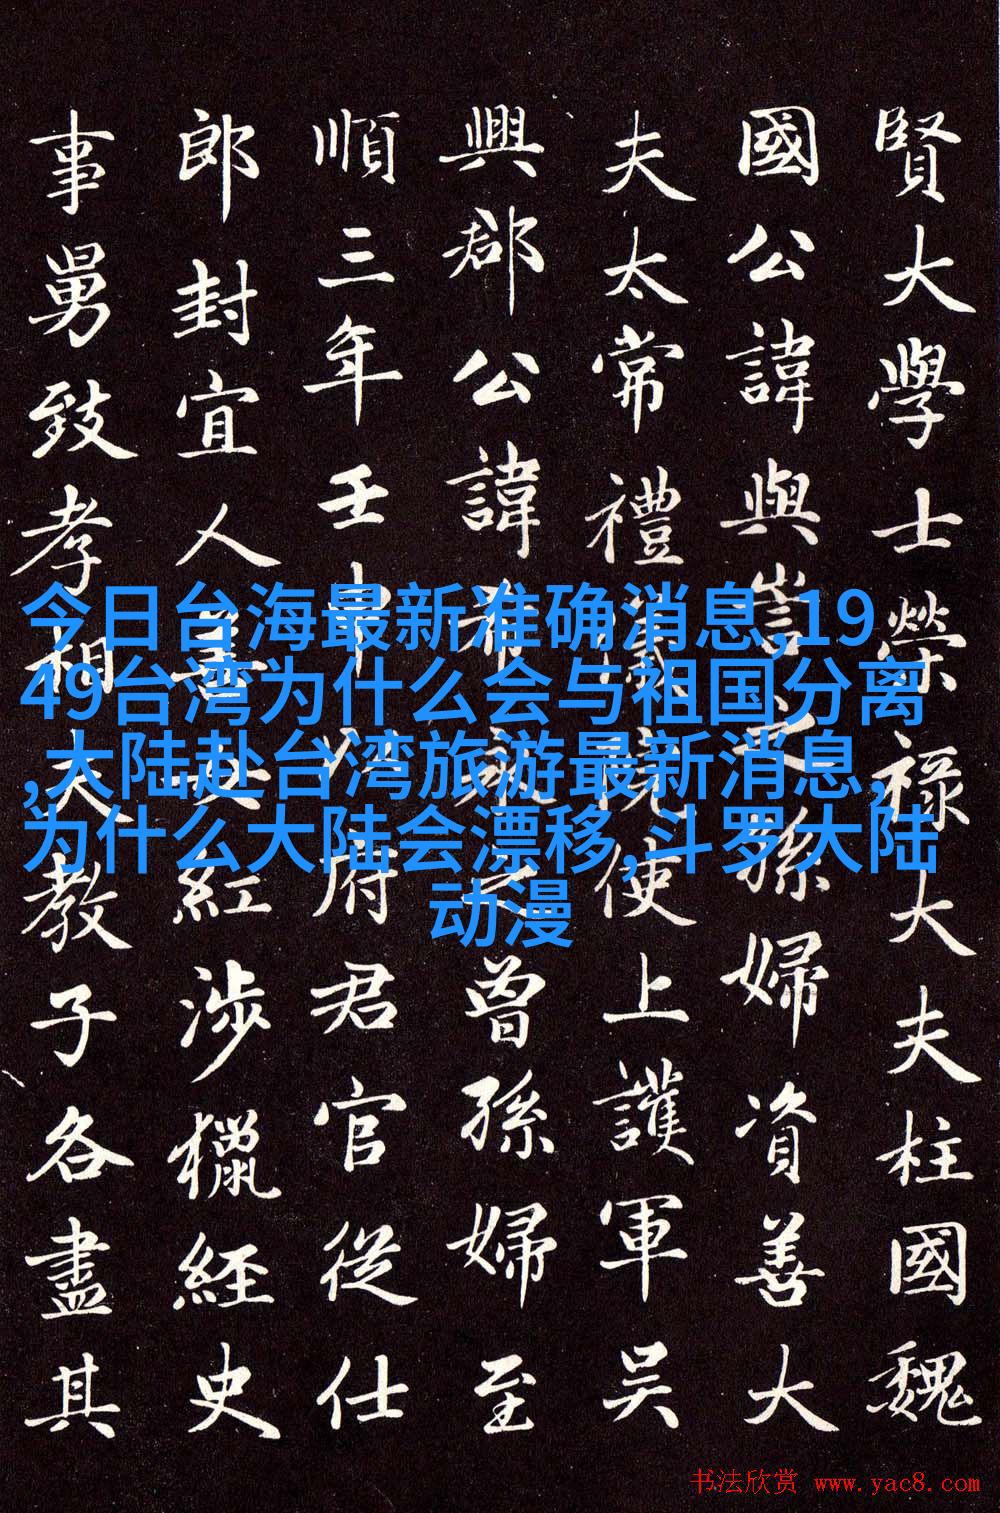 賢大學士榮祿大夫柱國魏
國公諱與訔之孫婦資善大
夫太常禮儀院使上護軍吳
興郡公諱希之曾孫婦至
順三年壬申以府君官從仕
郎封宜人善女紅涉獵經史
事舅致孝相夫教子各盡其
今日台海最新准确消息,19
49台湾为什么会与祖国分离
,大陆赴台湾旅游最新消息,
为什么大陆会漂移,斗罗大陆
动漫
书法欣赏 www.yac8.com